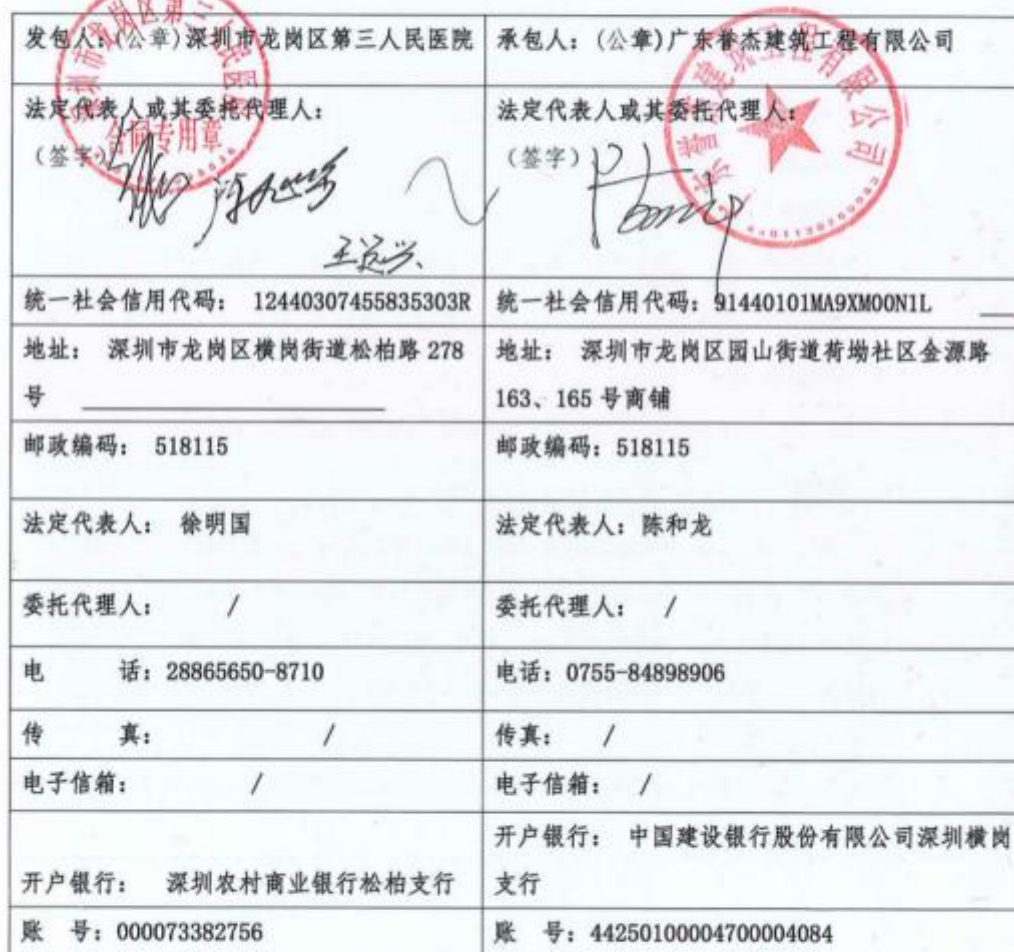 发包人：(公章)深圳市龙岗区第三人民医院
承包人：(公章)广东誉杰建筑工程有限公司
法定代表人或其委托代理人：
（签字）
法定代表人或其委托代理人：
（签字）
合同专用章
统一社会信用代码： 12440307455835303R
统一社会信用代码：91440101MA9XM00N1L
地址： 深圳市龙岗区横岗街道松柏路 278
号
地址： 深圳市龙岗区园山街道荷坳社区金源路
163、165 号商铺
邮政编码： 518115
邮政编码：518115
法定代表人： 徐明国
法定代表人：陈和龙
委托代理人： /
委托代理人： /
电 话：28865650-8710
电话：0755-84898906
传 真： /
传真： /
电子信箱： /
电子信箱： /
开户银行： 深圳农村商业银行松柏支行
开户银行： 中国建设银行股份有限公司深圳横岗
支行
账 号：000073382756
账 号：44250100004700004084